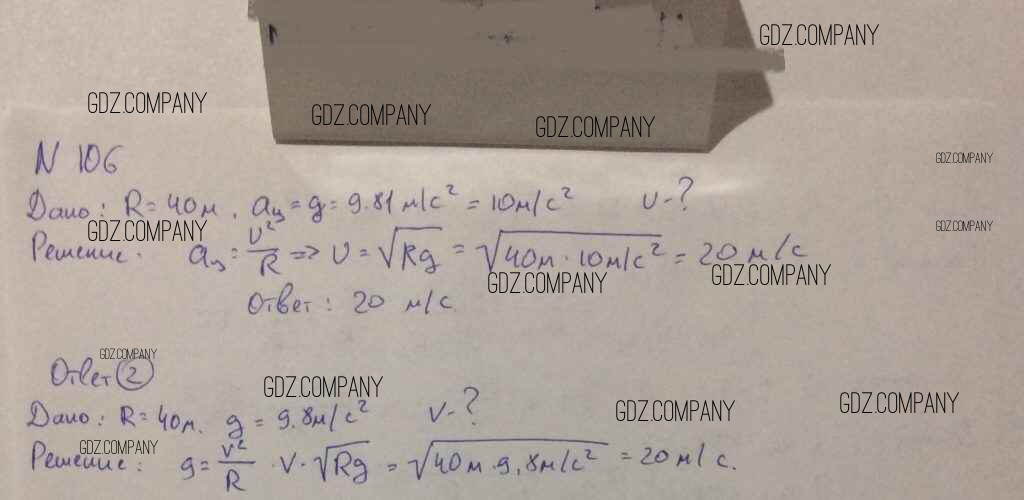 GDZ.COMPANY
GDZ.COMPANY
GDZ.COMPANY
GDZ.COMPANY
N 106
GDZ.COMPANY
Дано: R = 40м, aц = g = 9.81 м/с² = 10 м/с² υ - ?
GDZ.COMPANY
GDZ.COMPANY
Решение: aц = υ²/R => υ = √Rg = √40м · 10м/с² = 20 м/с
GDZ.COMPANY
GDZ.COMPANY
Ответ: 20 м/с
GDZ.COMPANY
Ответ (2)
GDZ.COMPANY
GDZ.COMPANY
GDZ.COMPANY
Дано: R = 40м. g = 9.8м/с² V - ?
GDZ.COMPANY
Решение: g = V²/R · V · √Rg = √40м · 9,8м/с² = 20 м/с.